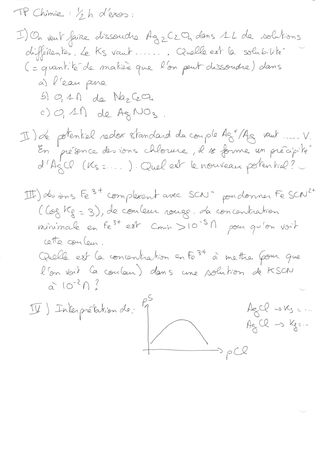 TP Chimie : 1/2 h d'exos :
I) On veut faire dissoudre Ag2C2O4 dans 1L de solutions
différentes. Le Ks vaut ....... Quelle est la solubilité
(= quantité de matière que l'on peut dissoudre) dans
a) l'eau pure
b) 0,1M de Na2C2O4
c) 0,1M de AgNO3.
II) Le potentiel redox standard du couple Ag+/Ag vaut ..... V.
En présence des ions chlorure, il se forme un précipité
d'AgCl (Ks = ....). Quel est le nouveau potentiel ?
III) Les ions Fe3+ complexent avec SCN- pour donner FeSCN2+
(log Kf = 3), de couleur rouge. La concentration
minimale en Fe3+ est Cmin > 10-5 M pour qu'on voit
cette couleur.
Quelle est la concentration en Fe3+ à mettre (pour que
l'on voit la couleur) dans une solution de KSCN
à 10-2 M ?
IV) Interprétation de :
pS
AgCl → Ks = ...
AgCl → Kf = ...
pCl